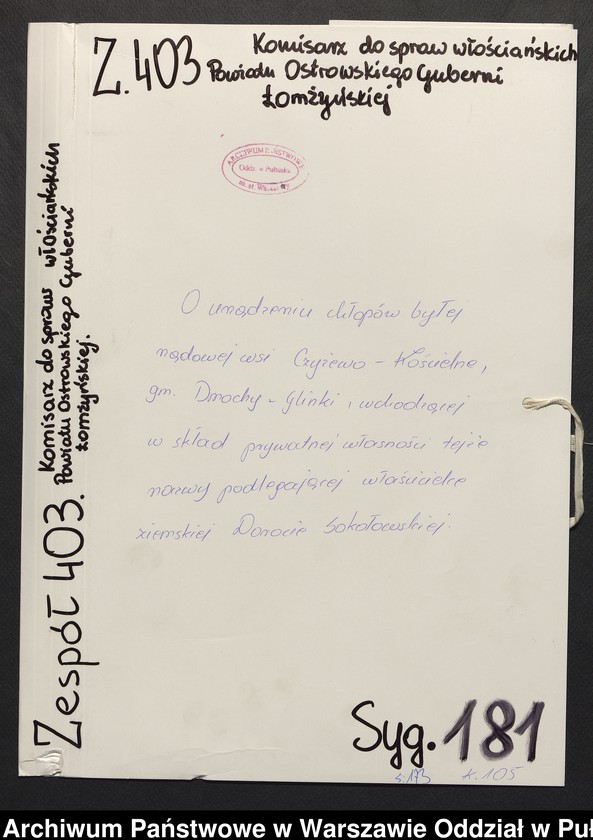 Z. 403 Komisarz do spraw włościańskich
Powiatu Ostrowskiego Guberni
Łomżyńskiej
ARCHIWUM PAŃSTWOWE
Oddz. w Pułtusku
m. st. Warszawy
O urządzeniu chłopów byłej
rządowej wsi Czyżewo - Kościelne,
gm. Dmochy - Glinki, wchodzącej
w skład prywatnej własności tejże
nazwy podlegającej właścicielce
ziemskiej Dorocie Sokołowskiej.
Zespół 403. Komisarz do spraw włościańskich
Powiatu Ostrowskiego Guberni
Łomżyńskiej.
Syg. 181
s. 173 k. 105
Archiwum Państwowe w Warszawie Oddział w Puł